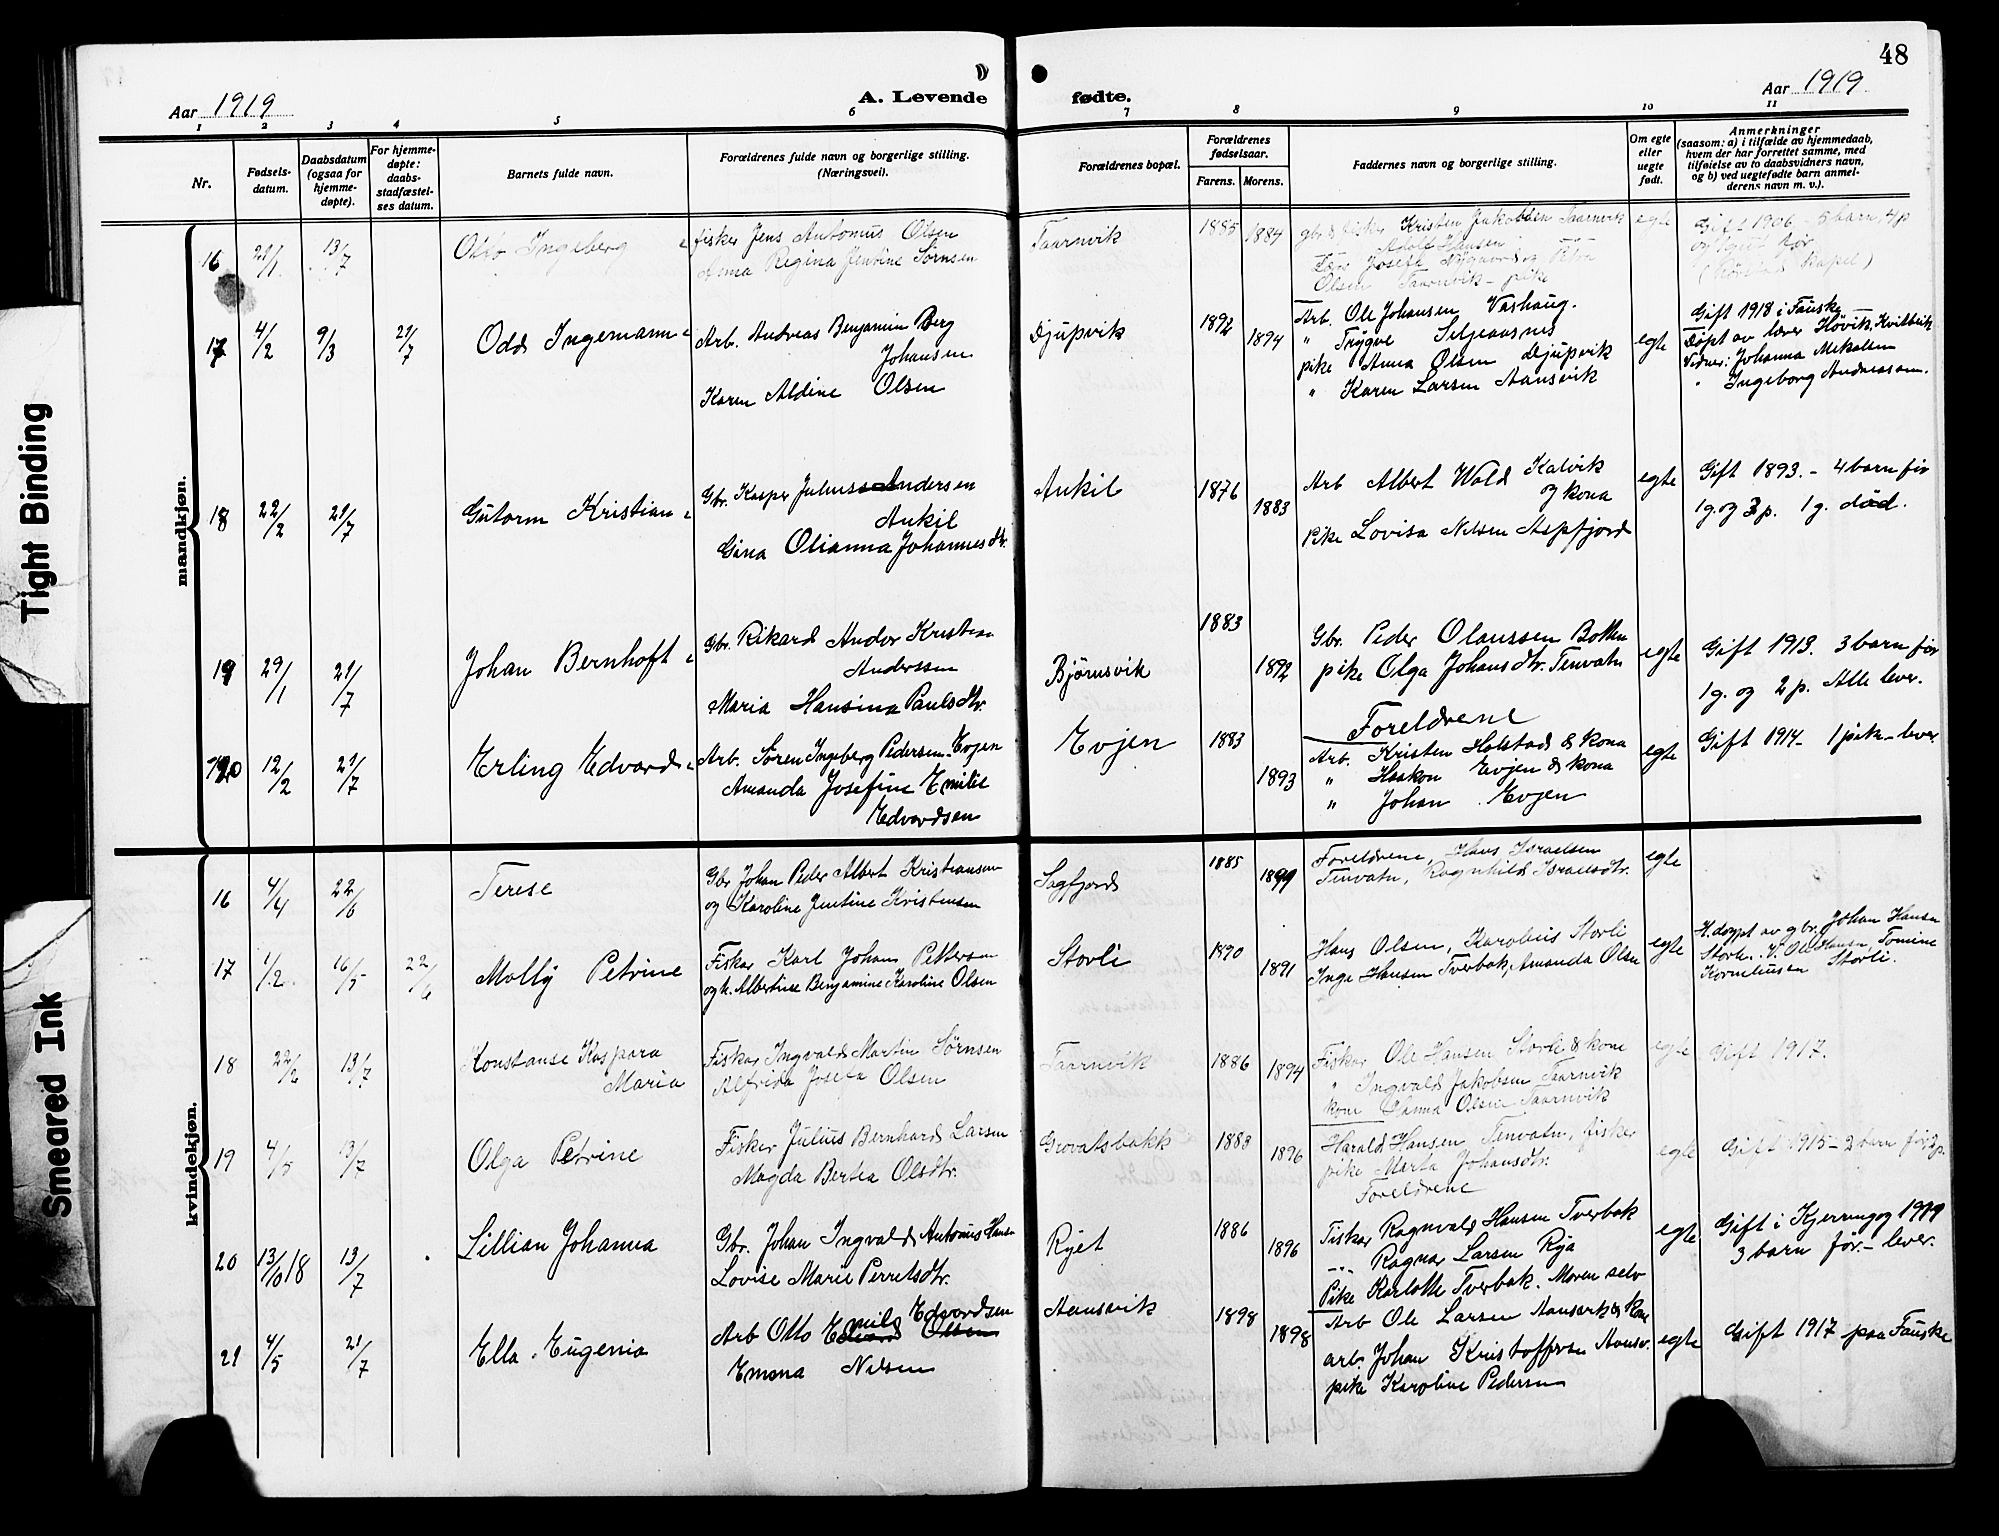 Tight Binding
Smeared Ink
48
Aar 1919
A. Levende fødte.
Aar 1919
1 2 3 4 5 6 7 8 9 10 11
Nr.
Fødsels-
datum.
Daabsdatum
(ogsaa for
hjemme-
døpte).
For hjemme-
døpte:
daabs-
stadfæstel-
ses datum.
Barnets fulde navn.
Forældrenes fulde navn og borgerlige stilling.
(Næringsvei).
Forældrenes bopæl.
Forældrenes
fødselsaar.
Farens. Morens.
Faddernes navn og borgerlige stilling.
Om egte
eller
uegte
født.
Anmerkninger
(saasom: a) i tilfælde av hjemmedaab,
hvem der har forrettet samme, med
tilføielse av to daabsvidners navn,
og b) ved uegtefødte barn anmel-
derens navn m. v.).
mandkjøn.
16 21/1 13/7
Otto Ingeberg
fisker Jens Antonius Olsen
Anna Regina Jentine Sørnsen
Taarnvik
1885 1884
gbr & fisker Kristen Jakobsen Taarnvik
Adolf Hansen
Olsen Taarnvik - pike
egte
Gift 1906 - 5 barn, 4 p
og 1 gut før
17 4/2 9/3 21/7
Odd Ingemann
Arb. Andreas Benjamin Berg
Johansen
Karen Aldine Olsen
Djupvik
1892 1894
Arb. Ole Johansen Vashaug.
" Trygve Seljeaasnes
pike Anna Olsen Djupvik
" Karen Larsen Aansvik
egte
Gift 1918 i Fauske
Døpt av lærer Hövik, Kvitblik
Vidner: Johanna Mikalsen
" Ingeborg Andreassen.
18 22/2 21/7
Gutorm Kristian
Gbr. Kasper Julius Andersen
Ankil
Gina Olianna Johannesdtr.
Ankil
1876 1883
Arb Albert Wold Kalvik
og kona
Pike Lovisa Nilsen Aspfjord
egte
Gift 1893. - 4 barn før
1 g. og 3 p. 1 g. död.
19 29/1 21/7
Johan Bernhoft
Gbr. Rikard Andor Kristian
Anderssen
Maria Hansina Paulsdtr.
Bjørnsvik
1883 1892
Gbr. Peder Olaussen Botten
pike Olga Johansdtr. Tenvatn
Foreldrene
egte
Gift 1913. 3 barn før
1 g. og 2 p. Alle lever.
20 12/2 21/7
Erling Edvard
Arb. Sören Ingeberg Pedersen Evjen
Amanda Josefine Emilie
Edvardsen
Evjen
1883 1893
Arb. Kristen Holstad & kona
" Haakon Evjen & kona
" Johan Evjen
egte
Gift 1914 - 1 pike - lever
kvindekjøn.
16 4/4 22/6
Terese
Gbr Johan Peder Albert Kristiansen
og Karoline Jentine Kristensen
Sagfjord
1885 1899
Foreldrene, Hans Israelsen
Tenvatn, Ragnhild Israelsdtr.
egte
17 1/2 16/5 22/6
Molly Petrine
Fisker Karl Johan Pettersen
og h. Albertine Benjamine Karoline Olsen
Storli
1890 1891
Hans Olsen, Karolius Storli
Inga Hansen Tverbak, Amanda Olsen
egte
H.døpt av gbr. Johan Hansen
Storli. V. Ole Hansen, Tomine
Korneliussen Storli.
18 22/2 13/7
Konstanse Kaspara
Maria
Fisker Ingvald Martin Sörnsen
Alfrida Josefa Olsen
Taarnvik
1886 1894
Fisker Ole Hansen Storli & kone
" Ingvald Jakobsen Taarnvik
kone Hanna Olsen Taarnvik
egte
Gift 1917.
19 4/5 13/7
Olga Petrine
Fisker Julius Bernhard Larsen
Magda Bertea Olsdtr.
Grovatsbakk
1883 1896
Harald Hansen Tenvatn, fisker
pike Marta Johansdtr.
Foreldrene
egte
Gift 1915 - 2 barn før 2 p.
20 13/10 18 13/7
Lillian Johanna
Gbr. Johan Ingvald Antonius Hansen
Lovise Marie Perretsdtr.
Ryet
1886 1896
Fisker Ragnvald Hansen Tverbak
" Ragnar Larsen Rya
Pike Karlotte Tverbak. Moren selv
egte
Gift i Kjerringøy 19
3 barn før. - lever.
21 4/5 21/7
Ella Eugenia
Arb Otto Emil Edvardsen
Emma Nilsen
Aansvik
1898 1898
Arb Ole Larsen Aansvik & kone
arb. Johan Kristoffersen Aansv.
pike Karoline Pedersen
egte
Gift 1917 paa Fauske